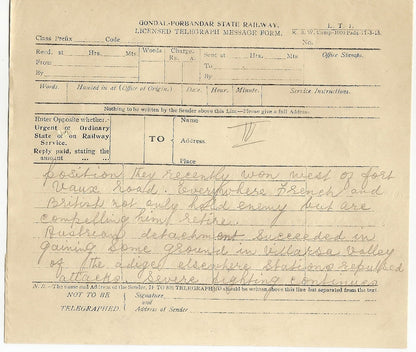 GONDAL-PORBANDAR STATE RAILWAY.
LICENSED TELEGRAPH MESSAGE FORM.
L. T. 1.
Class Prefix Code
No.
Recd. at Hrs. Mts.
Words
Charge.
Rs. a.
Sent at Hrs. Mts.
Office Stamps.
From
To
By
By
Words
Handed in at (Office of Origin.)
Date.
Hour.
Minute.
Service Instructions.
Nothing to be written by the Sender above this Line—Please give a full Address.
Enter Opposite whether:-
Urgent or Ordinary
State or on Railway
Service.
Reply paid, stating the
amount
TO
Name
Address
Place
IV
position they recently won west of fort
Vaux road. Everywhere French and
British not only hold enemy but are
compelling him retire.
Austrian detachment succeeded in
gaining some ground in Villarsa valley
of the adige elsewhere stations repulsed
attacks. Severe fighting continues
N. B.—The name and Address of the Sender, IF TO BE TELEGRAPHED should be written above this line but separated from the text.
NOT TO BE
TELEGRAPHED
Signature
and
Address of Sender